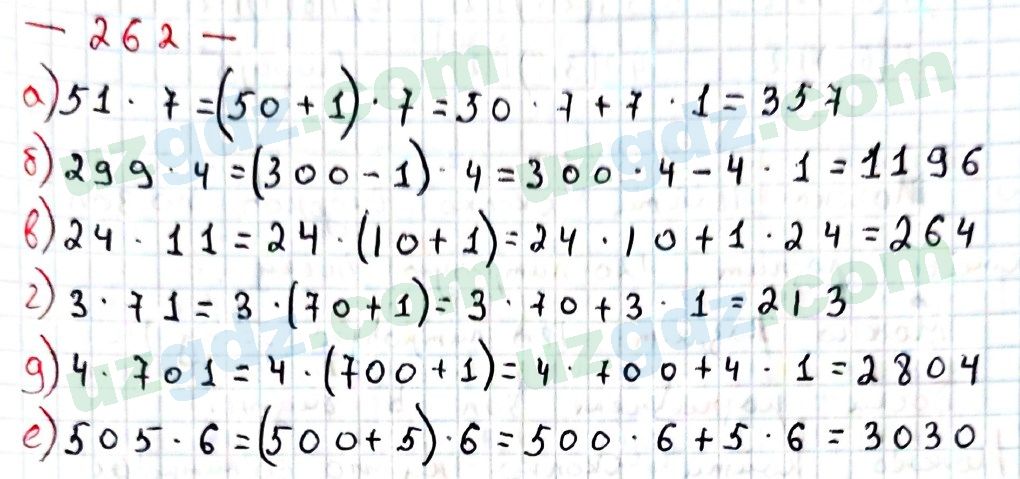 — 262 —
а) 51 · 7 = (50 + 1) · 7 = 50 · 7 + 7 · 1 = 357
б) 299 · 4 = (300 - 1) · 4 = 300 · 4 - 4 · 1 = 1196
в) 24 · 11 = 24 · (10 + 1) = 24 · 10 + 1 · 24 = 264
г) 3 · 71 = 3 · (70 + 1) = 3 · 70 + 3 · 1 = 213
д) 4 · 701 = 4 · (700 + 1) = 4 · 700 + 4 · 1 = 2804
е) 505 · 6 = (500 + 5) · 6 = 500 · 6 + 5 · 6 = 3030
uzgdz.com
uzgdz.com
uzgdz.com
uzgdz.com